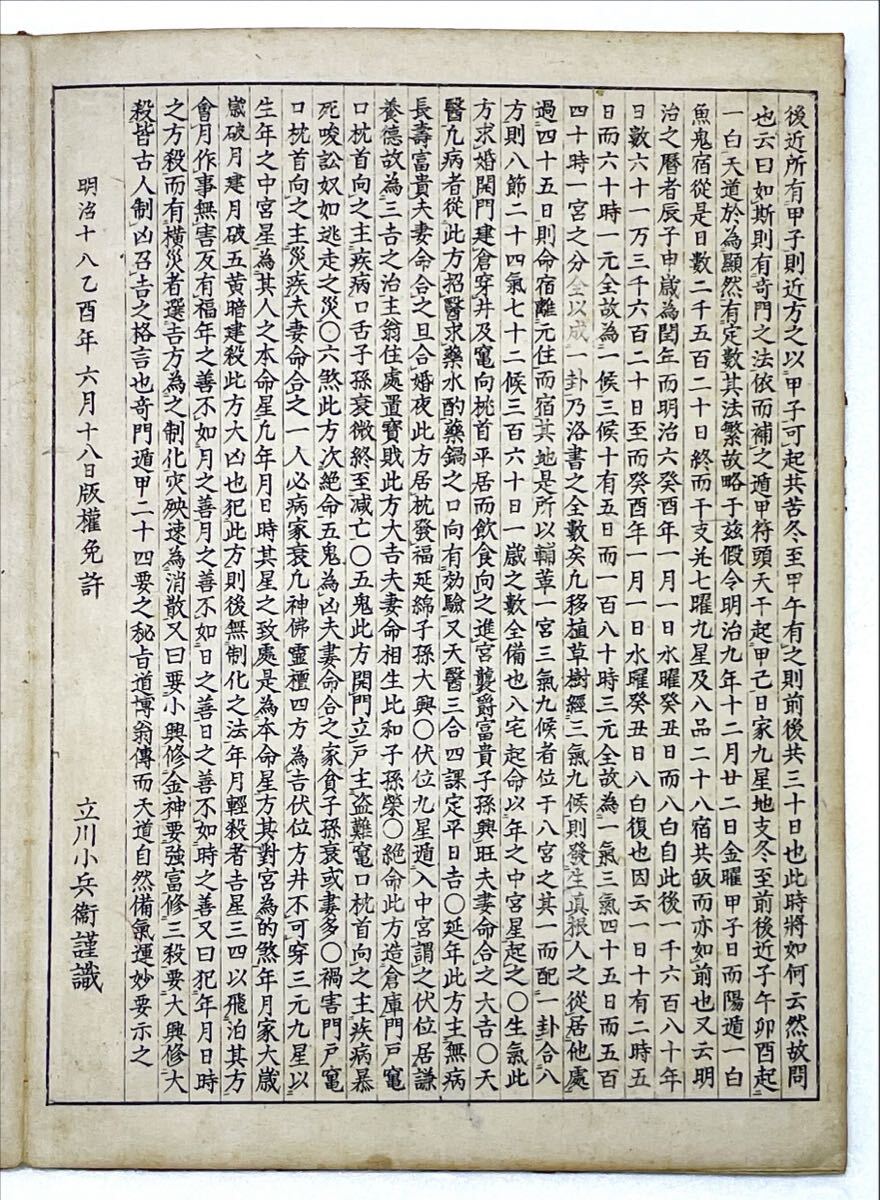 後近所有甲子則近方之以甲子可起共苦冬至甲午有之則前後共三十日也此時將如何云然故問
也云曰如斯則有奇門之法依而補之遁甲符頭天干起甲己日家九星地支冬至前後近子午卯酉起
一白天道於為顯然有定數其法繁故略于茲假令明治九年十二月廿二日金曜甲子日而陽遁一白
魚鬼宿從是日數二千五百二十日終而干支并七曜九星及八品二十八宿共皈而亦如前也又云明
治之曆者辰子申歲為閏年而明治六癸酉年一月一日水曜癸丑日而八白自此後一千六百八十年
日數六十一万三千六百二十日至而癸酉年一月一日水曜癸丑日八白復也因云一日十有二時五
日而六十時一元全故為一候三候十有五日而一百八十時三元全故為一氣三氣四十五日而五百
四十時一宮之分全以成一卦乃洛書之全數矣凡移植草樹經三氣九候則發生真根人之從居他處
過四十五日則命宿離元住而宿其地是所以輔葦一宮三氣九候者位于八宮之其一而配一卦合八
方則八節二十四氣七十二候三百六十日一歲之數全備也八宅起命以年之中宮星起之〇生氣此
方求婚開門建倉穿井及竃向枕首平居而飲食向之進宮襲爵富貴子孫興旺夫妻命合之大吉〇天
醫凡病者從此方招醫求藥水酌藥鍋之口向有効驗又天醫三合四課定平日吉〇延年此方主無病
長壽富貴夫妻命合之旦合婚夜此方居枕發福延綿子孫大興〇伏位九星遁入中宮謂之伏位居謙
養德故為三吉之治主翁住處置寶貤此方大吉夫妻命相生比和子孫榮〇絕命此方造倉庫門戸竃
口枕首向之主疾病口舌子孫衰微終至减亡〇五鬼此方開門立戸主盜難竃口枕首向之主疾病暴
死唆訟奴如逃走之災〇六煞此方次絕命五鬼為凶夫妻命合之家貧子孫衰或妻多〇禍害門戸竃
口枕首向之主災疾夫妻命合之一人必病家衰凡神佛靈檀四方為吉伏位方井不可穿三元九星以
生年之中宮星為其人之本命星九年月日時其星之致處是為本命星方其對宮為的煞年月家大歲
歲破月建月破五黃暗建殺此方大凶也犯此方則後無制化之法年月輕殺者吉星三四以飛泊其方
會月作事無害及有福年之善不如月之善月之善不如日之善日之善不如時之善又曰犯年月日時
之方殺而有橫災者選吉方為之制化灾殃速為消散又曰要小興修金神要強富修三殺要大興修大
殺皆古人制凶召吉之格言也奇門遁甲二十四要之秘㫖道博翁傳而天道自然備氣運妙要示之
明治十八乙酉年六月十八日版權免許
立川小兵衞謹識